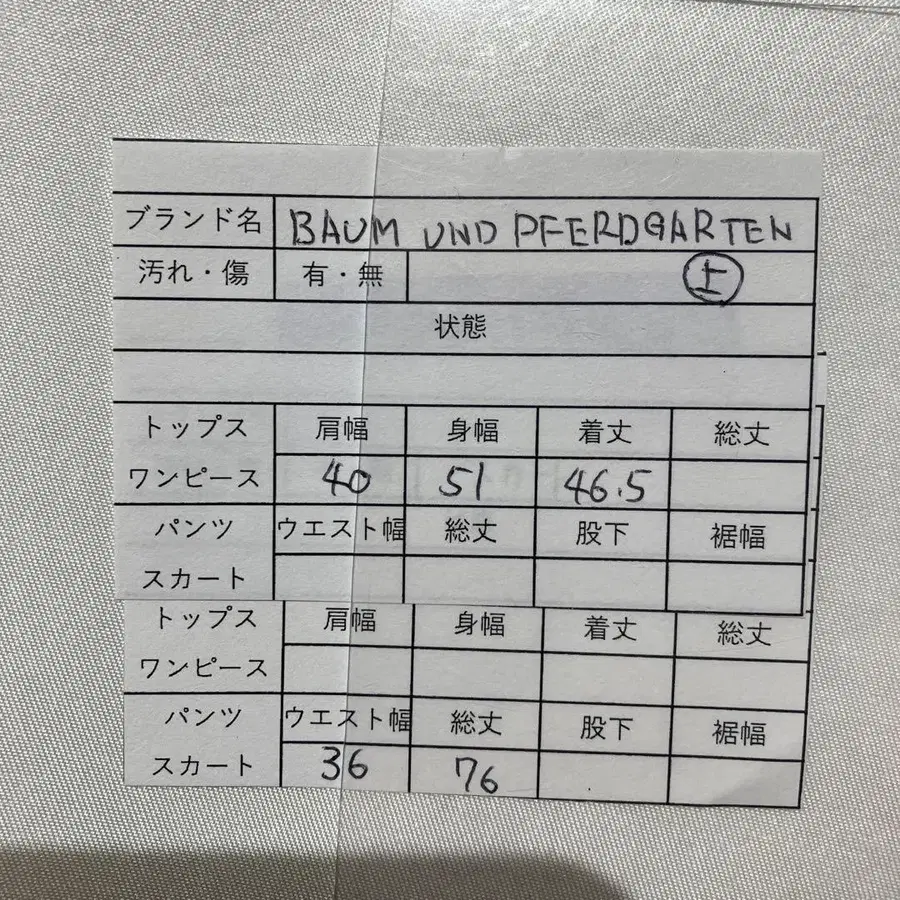 ブランド名 BAUM UND PFERDGARTEN
汚れ・傷 有・無 上
状態
トップス 肩幅 身幅 着丈 総丈
ワンピース 40 51 46.5
パンツ ウエスト幅 総丈 股下 裾幅
スカート
トップス 肩幅 身幅 着丈 総丈
ワンピース
パンツ ウエスト幅 総丈 股下 裾幅
スカート 36 76